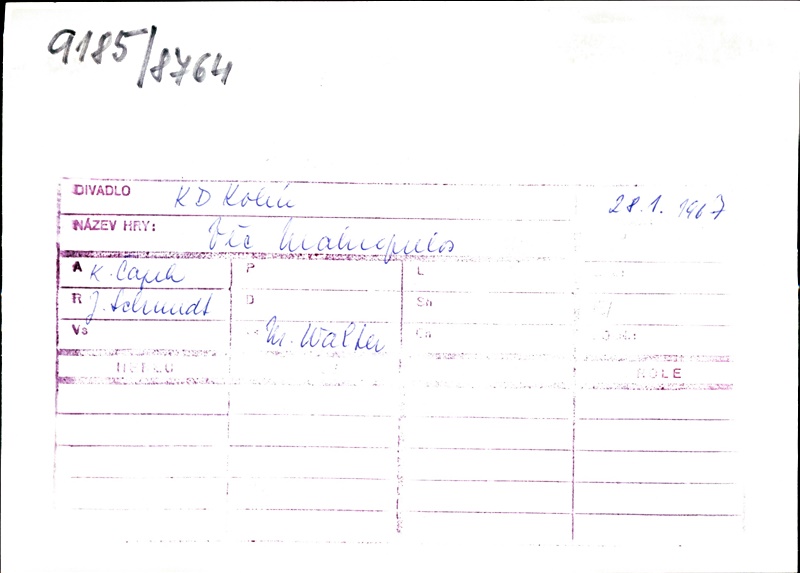 9185/8764
DIVADLO KD Kolín 28.1. 1967
NÁZEV HRY: Věc Makropulos
A K. Čapek P L
R J. Schmidt D Sn
Vs M. Walter
ROLE